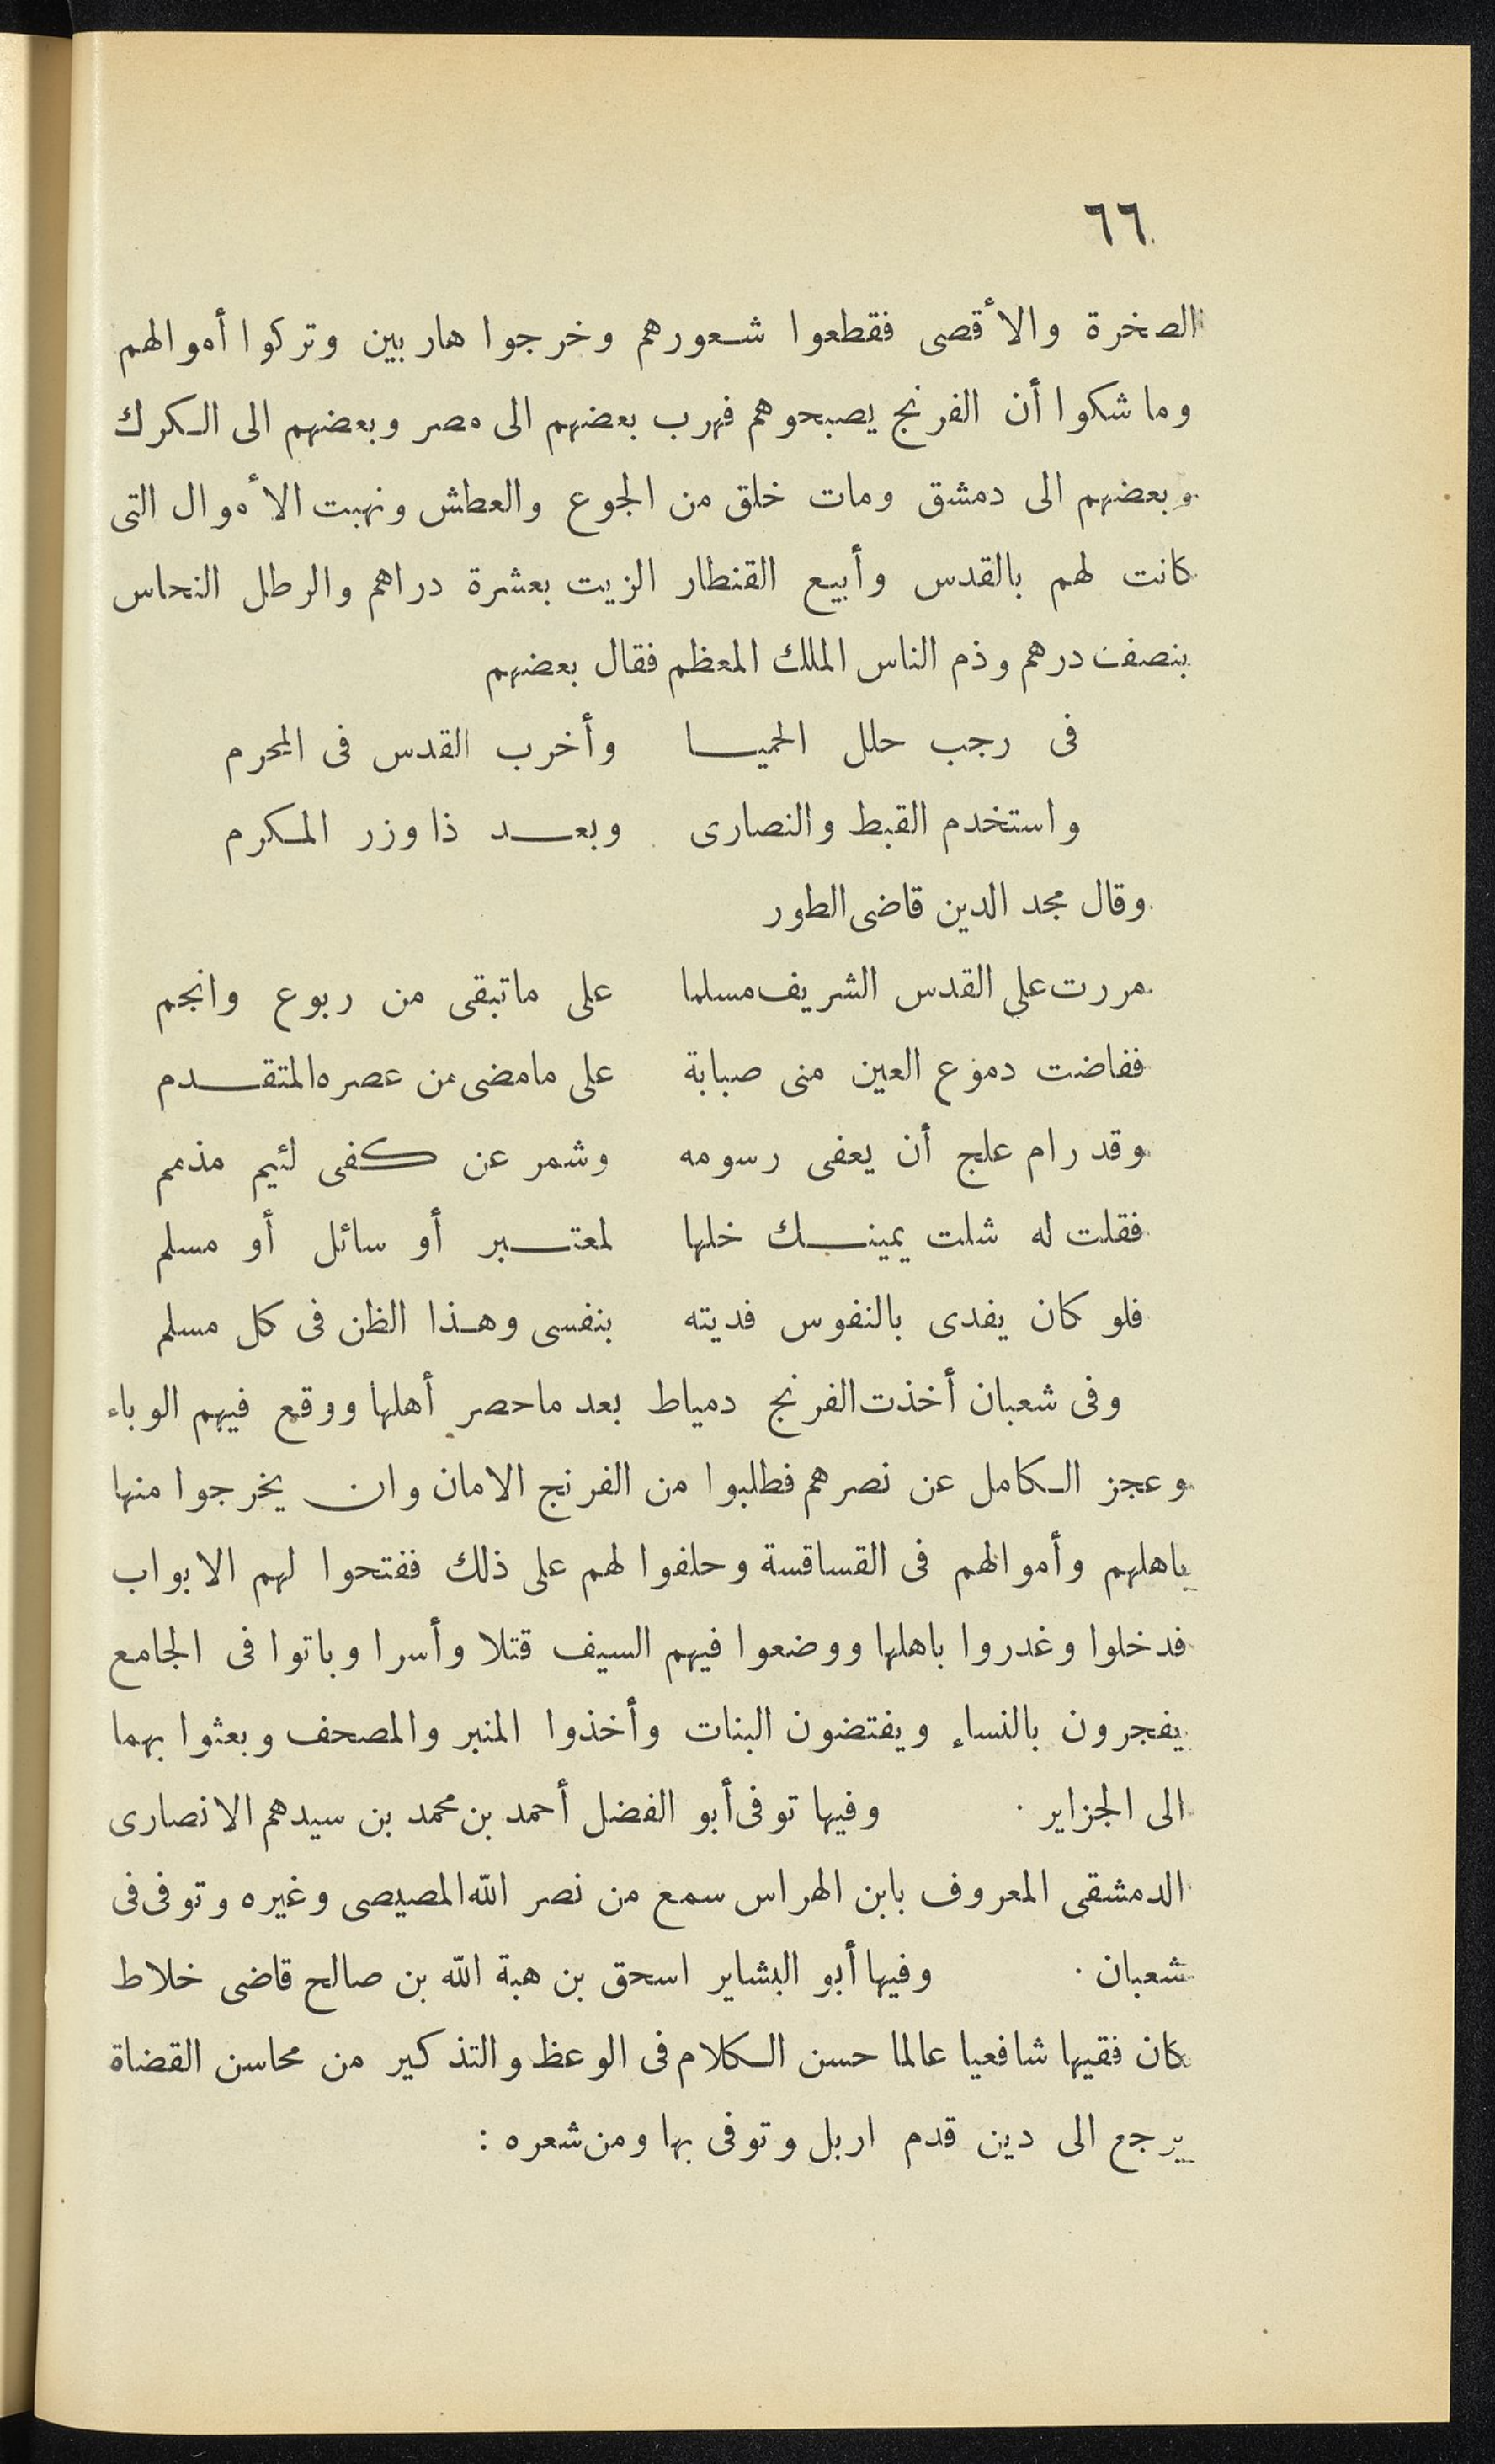 ٦٦
الصخرة والأقصى فقطعوا شعورهم وخرجوا هاربين وتركوا أموالهم
وما شكوا أن الفرنج يصبحوهم فهرب بعضهم الى مصر وبعضهم الى الكرك
وبعضهم الى دمشق ومات خلق من الجوع والعطش ونهبت الأموال التى
كانت لهم بالقدس وأبيع القنطار الزيت بعشرة دراهم والرطل النحاس
بنصف درهم وذم الناس الملك المعظم فقال بعضهم
فى رجب حلل الحميا وأخرب القدس فى المحرم
واستخدم القبط والنصارى وبعد ذا وزر المكرم
وقال مجد الدين قاضى الطور
مررت على القدس الشريف مسلما على ماتبقى من ربوع وانجم
ففاضت دموع العين منى صبابة على مامضى من عصره المتقدم
وقد رام علج أن يعفى رسومه وشمر عن كفى لئيم مذمم
فقلت له شلت يمينك خلها لمعتبر أو سائل أو مسلم
فلو كان يفدى بالنفوس فديته بنفسى وهذا الظن فى كل مسلم
وفى شعبان أخذت الفرنج دمياط بعد ماحصر أهلها ووقع فيهم الوباء
وعجز الكامل عن نصرهم فطلبوا من الفرنج الامان وان يخرجوا منها
باهلهم وأموالهم فى القساقسة وحلفوا لهم على ذلك ففتحوا لهم الابواب
فدخلوا وغدروا باهلها ووضعوا فيهم السيف قتلا وأسرا وباتوا فى الجامع
يفجرون بالنساء ويفتضون البنات وأخذوا المنبر والمصحف وبعثوا بهما
الى الجزاير . وفيها توفى أبو الفضل أحمد بن محمد بن سيدهم الانصارى
الدمشقى المعروف بابن الهراس سمع من نصر الله المصيصى وغيره وتوفى فى
شعبان . وفيها أبو البشاير اسحق بن هبة الله بن صالح قاضى خلاط
كان فقيها شافعيا عالما حسن الكلام فى الوعظ والتذكير من محاسن القضاة
يرجع الى دين قدم اربل وتوفى بها ومن شعره :